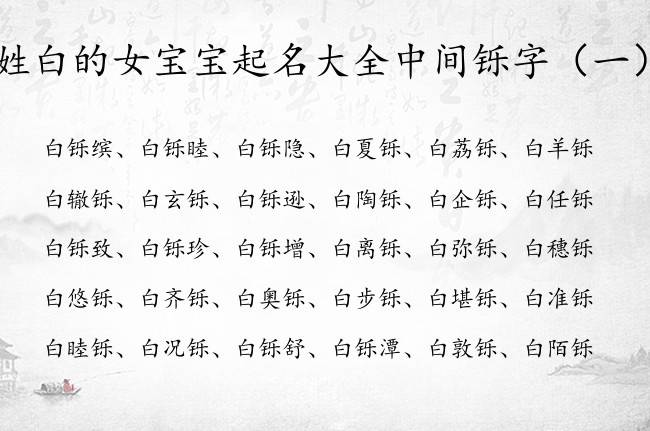 姓白的女宝宝起名大全中间铄字（一）
白铄缤、白铄睦、白铄隐、白夏铄、白荔铄、白羊铄
白辙铄、白玄铄、白铄逊、白陶铄、白企铄、白任铄
白铄致、白铄珍、白铄增、白离铄、白弥铄、白穗铄
白悠铄、白齐铄、白奥铄、白步铄、白堪铄、白准铄
白睦铄、白况铄、白铄舒、白铄潭、白敦铄、白陌铄